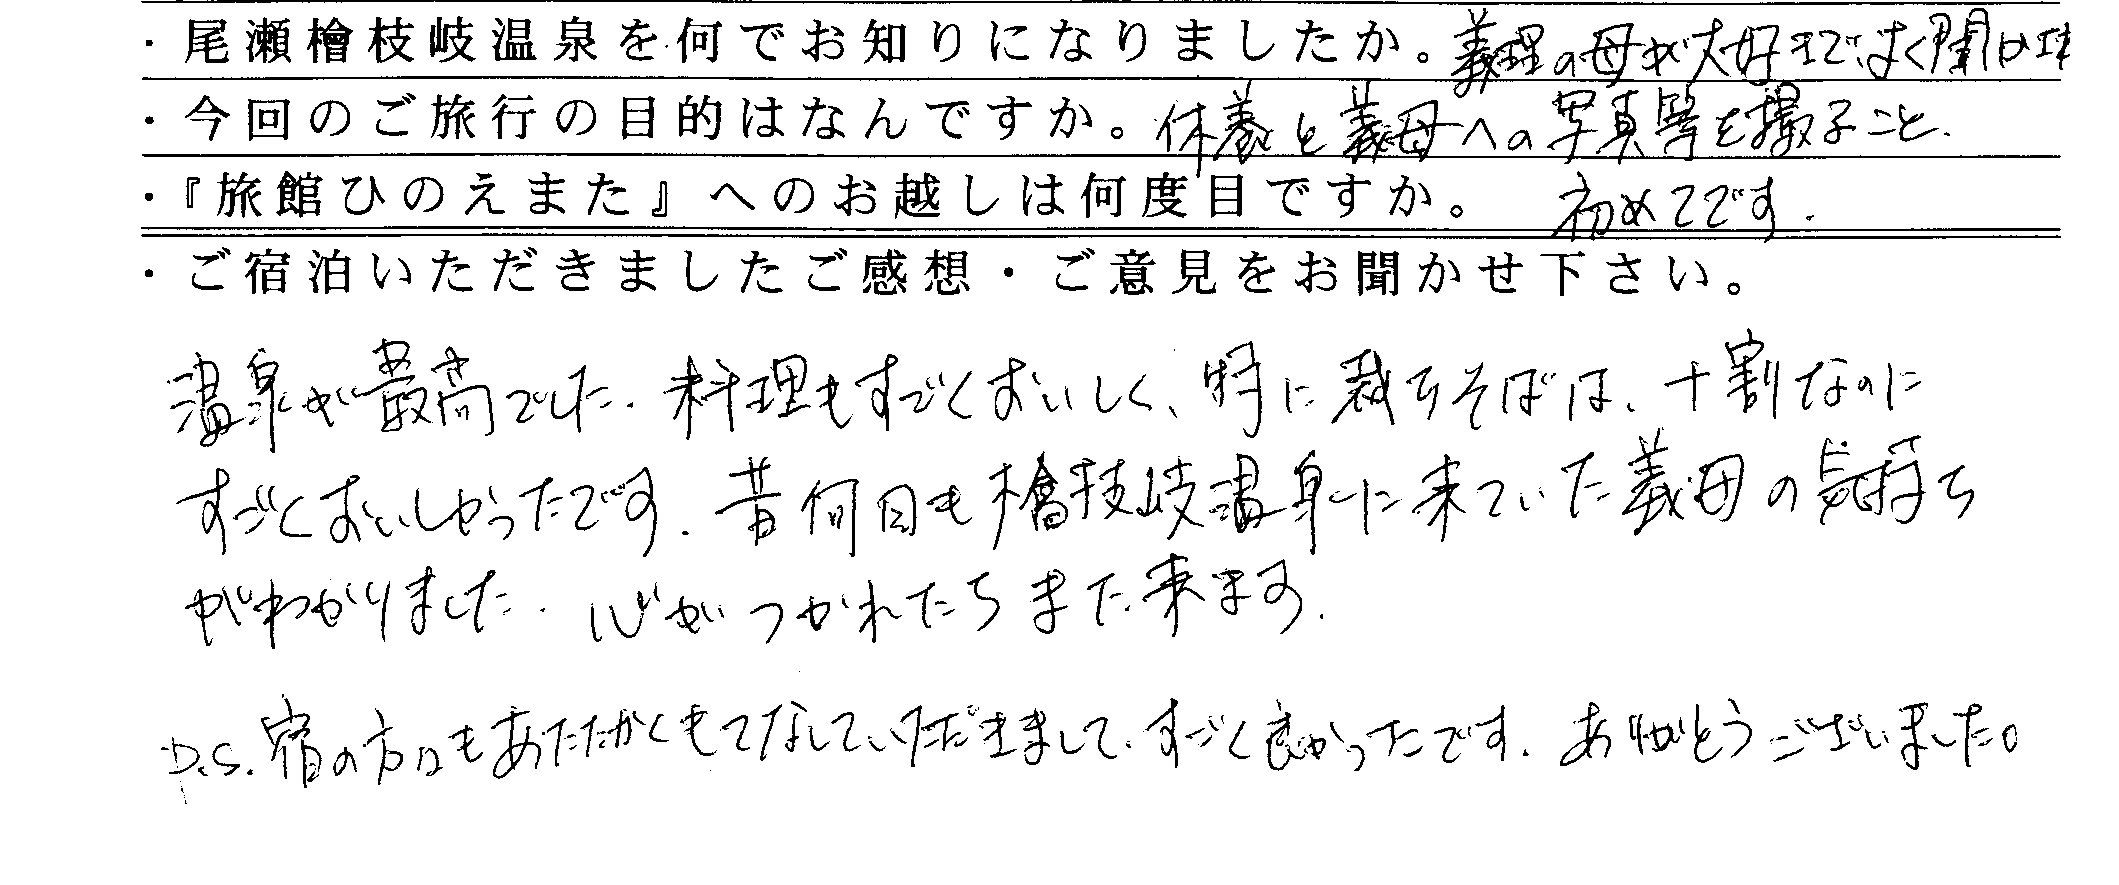 ・尾瀬檜枝岐温泉を何でお知りになりましたか。義理の母が大好きでよく聞い
・今回のご旅行の目的はなんですか。休養と義母への写真等を撮ること.
・『旅館ひのえまた』へのお越しは何度目ですか。 初めてです.
・ご宿泊いただきましたご感想・ご意見をお聞かせ下さい。
温泉が最高でした. 料理もすごくおいしく、特に裁ちそばは、十割なのに
すごくおいしかったです. 昔何回も檜枝岐温泉に来ていた義母の気持ち
がわかりました. 心がつかれたらまた来ます.
P.S. 宿の方々もあたたかくもてなしていただきまして、すごく良かったです. ありがとうございました。